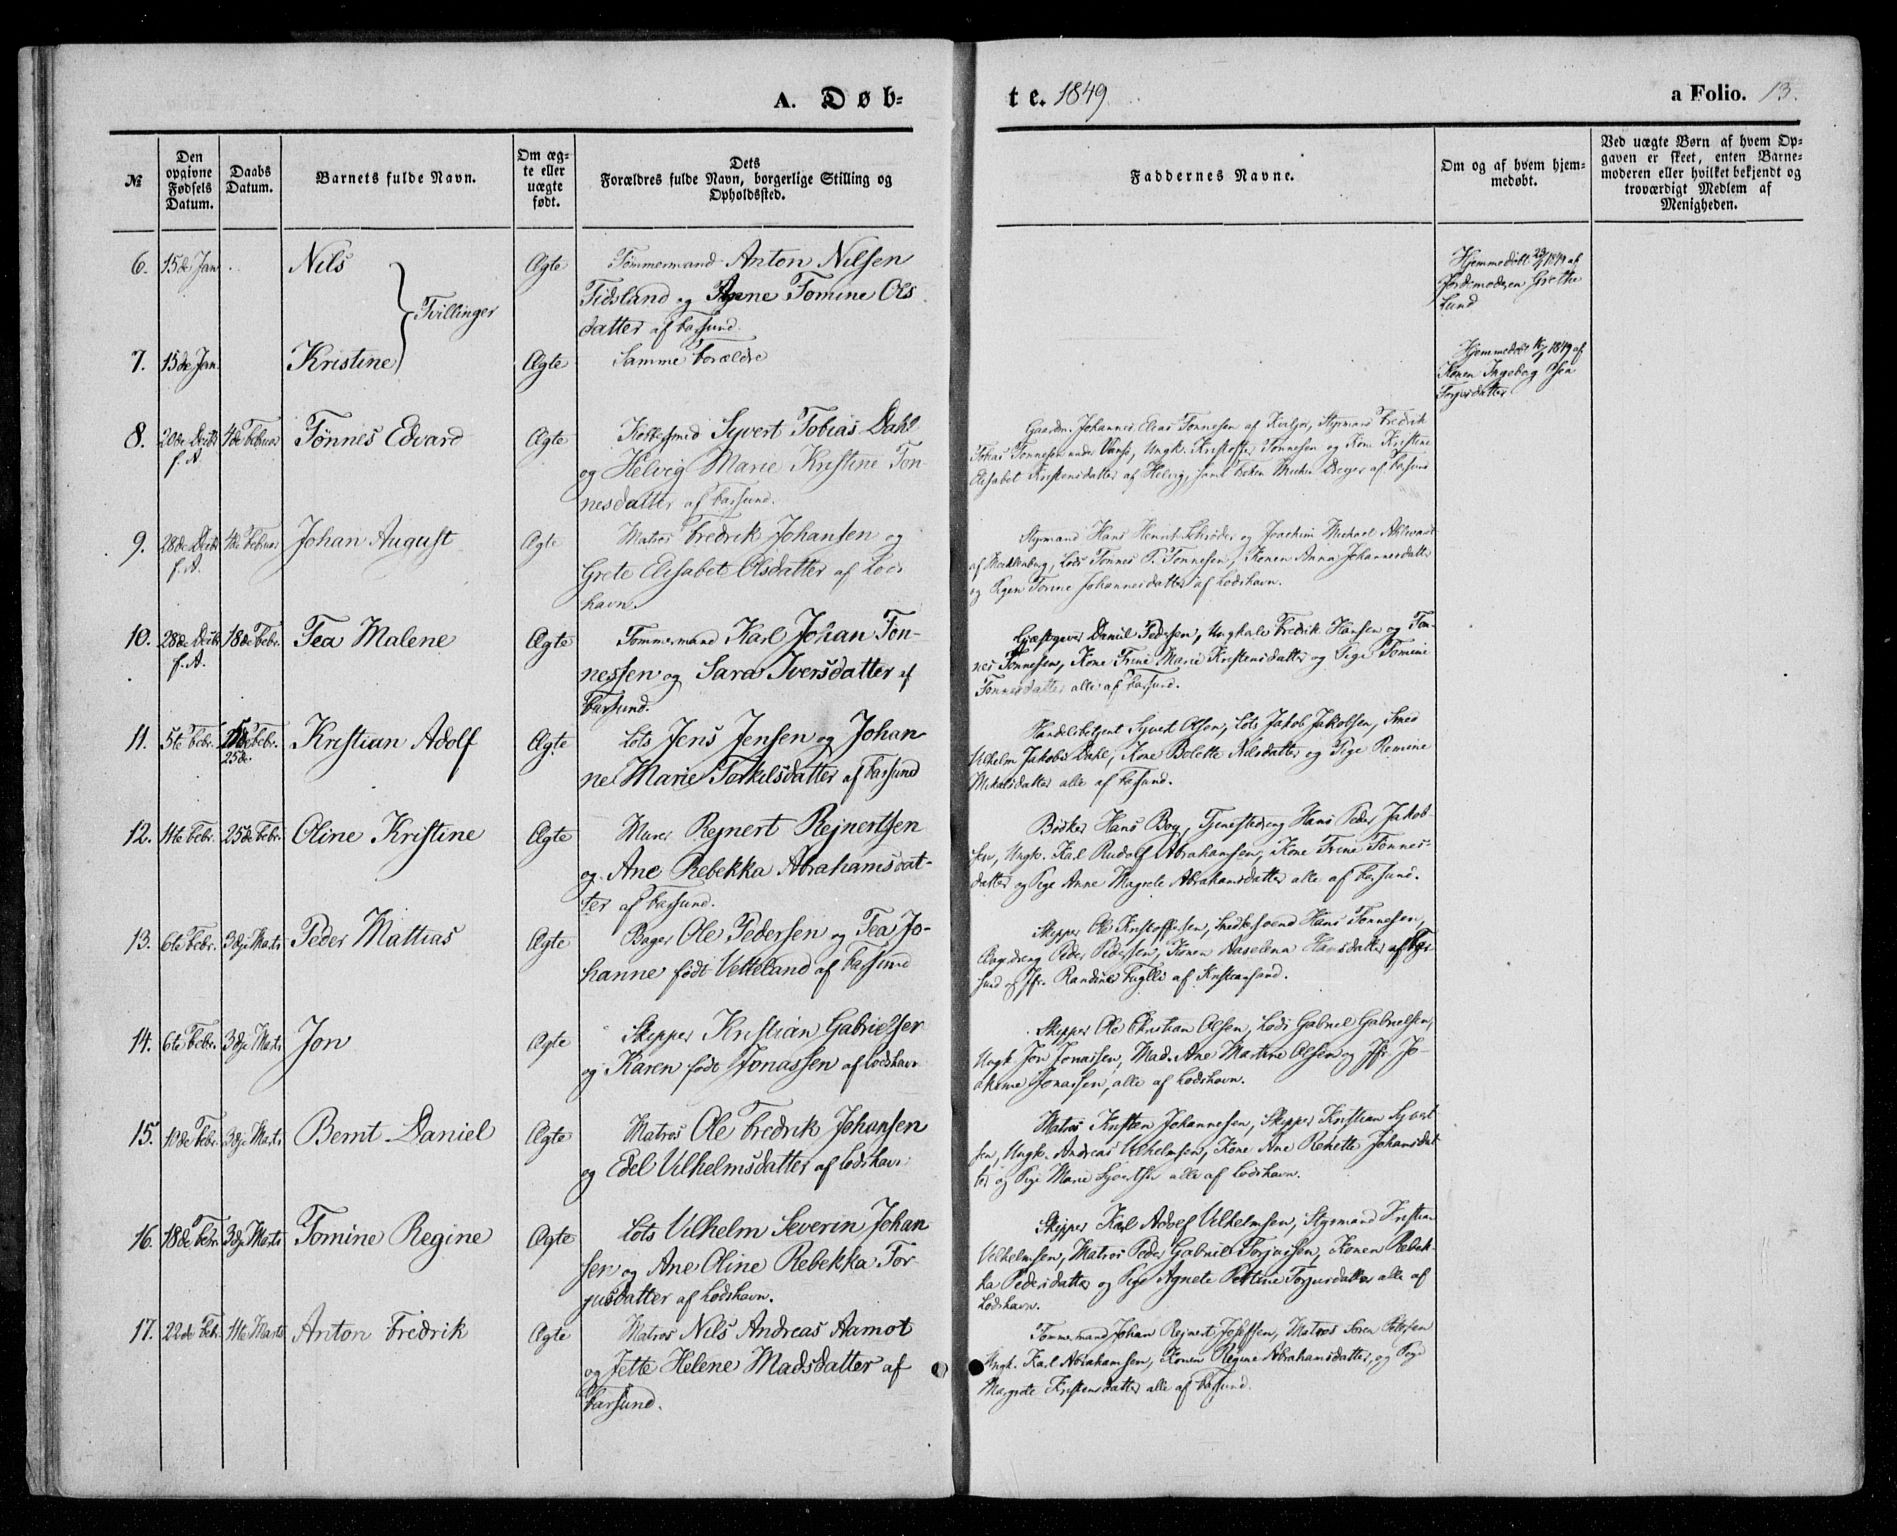 A. Døb-
te. 1849
a Folio. 13.
№
Den opgivne Fødsels Datum.
Daabs Datum.
Barnets fulde Navn.
Om ægte eller uægte født.
Dets Forældres fulde Navn, borgerlige Stilling og Opholdssted.
Faddernes Navne.
Om og af hvem hjemmedøbt.
Ved uægte Børn af hvem Opgaven er skeet, enten Barnemoderen eller hvilket bekjendt og troværdigt Medlem af Menigheden.
6. 15de Jan. Nils Ægte Tømmermand Anton Nilsen
Tidsland og Anne Tomine Ols
datter af Farsund.
Tvillinger
Hjemmedøbt 1849 af
Jordemoderen Grethe
Lund
7. 15de Jan. Kristine Ægte Samme Forældre
Hjemmedøbt 1849 af
Konen Ingeborg
8. 20de Decbr f.A. 4de Februar Tønnes Edvard Ægte Syvert Tobias Dahl
og Helvig Marie Kristine Tøn-
nesdatter af Farsund.
Gaardm. Johannes Elias Tønnesen af Styrmand Fredrik
Tobias Tønnesen under Vansø, Ungk. Kristoffer Tønnesen og Kone Kristine
Elisabet Kristensdatter af Helvig, samt af Farsund
9. 28de Decbr f.A. 4de Februar Johan August Ægte Matros Fredrik Johansen og
Grete Elisabet Olsdatter af Lods
havn.
Styrmand Hans Henrik Schrøder og Joachim Michael
af Mecklenburg, Lods Tønnes P. Tønnesen, Konen Anna Johannesdatter
og Pigen Tomine Johannesdatter af Lodshavn.
10. 28de Decbr f.A. 18de Febr. Tea Malene Ægte Tømmermand Karl Johan Tøn-
nessen og Sara Iversdatter af
Farsund.
Gjæstgiver Daniel Pedersen, Ungkarl Fredrik Hansen og Tøn-
nes Tønnesen, Kone Trine Marie Kristensdatter og Pige Tomine
Tønnesdatter alle af Farsund.
11. 5te Febr. 25de Febr. Kristian Adolf Ægte Lots Jens Jensen og Johan
ne Marie Torkilsdatter af Farsund
Handelsbetjent Syvert Olsen, Lots Jakob Jakobsen, Smed
Vilhelm Jakobis Dahl, Kone Bolette Nilsdatter og Pige Remine
Mikalsdatter alle af Farsund.
12. 11te Febr. 25de Febr. Oline Kristine Ægte Murer Rejnert Rejnertsen
og Ane Rebekka Abrahamsdat-
ter af Farsund.
Bødker Hans Boy, Tjenestedreng Hans Peder Jakob-
sen, Ungk. Karl Rudolf Abrahamsen, Kone Trine Tønnes-
datter og Pige Anne Magrete Abrahamsdatter alle af Farsund.
13. 6te Febr. 3dje Marts Peder Mattias Ægte Bager Ole Pedersen og Tea Jo-
hanne født Vetteland af Farsund
Skipper Ole Kristoffersen, Snedkersvend Hans Tønnesen,
Bagedreng Peder Pedersen, Konen Aaselena Hansdatter af Far-
sund og Jfr. Randine Fuglli af Kristiansand.
14. 6te Febr. 3dje Marts Jon Ægte Skipper Kristian Gabrielsen
og Karen født Jonassen af Lodshavn
Skipper Ole Christian Olsen, Lods Gabriel Gabrielsen,
Ungk. Jon Jonassen, Mad. Ane Martine Olsen og Jfr. Jo-
akime Jonassen, alle af Lodshavn.
15. 10de Febr. 3dje Marts Bernt Daniel Ægte Matros Ole Fredrik Johansen
og Edel Vilhelmsdatter af Lodshavn
Matros Kristen Johannesen, Skipper Kristian Syvert
sen, Ungk. Andreas Vilhelmsen, Kone Ane Renette Johansdat
ter og Pige Marie Syvertsen alle af Lodshavn.
16. 18de Febr. 3dje Marts Tomine Regine Ægte Lots Vilhelm Severin Johan
sen og Ane Oline Rebekka Tor
jusdatter af Lodshavn.
Skipper Karl Adolf Vilhelmsen, Styrmand Kristian
Vilhelmsen, Matros Peder Gabriel Torjussen, Konen Rebek-
ka Pedersdatter og Pige Agnete Torjusdatter alle af
Lodshavn.
17. 22de Febr. 11te Marts Anton Fredrik Ægte Matros Nils Andreas Aamot
og Jette Helene Madsdatter af
Farsund.
Tømmermand Johan Rejnert Josefsen, Matros Søren Pettersen
Ungk. Karl Abrahamsen, Konen Regine Abrahamsdatter, og Pige
Magrete Kristensdatter alle af Farsund.